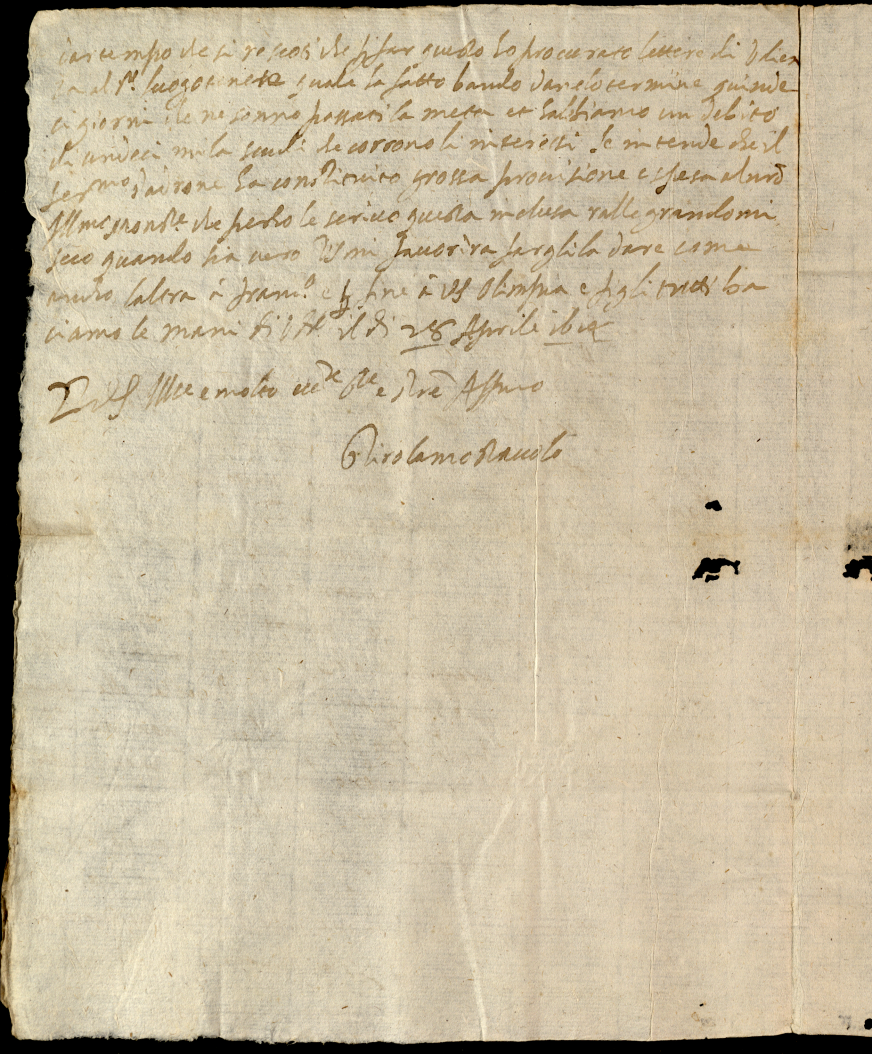 dar tempo che si rescoti che p far questo ho procurato lettere di
al s.r luogotenete quale ha fatto bando dandolo termine quinde
ci giorni che ne sonno passati la meta et habbiamo un debito
di undeci mila scudi che corrono li interessi Se intende che il
Ser.mo Padrone ha constituito grossa provisione e spesa al
Ill.mo che perho le scrivo questa inclusa rallegrandomi
seco quando sia vero VS mi favorira fargli la dare come
ancho laltra à fran.o e p fine à VS Olimpia e figli tutti ba
ciamo le mani di il di 28 Aprile
D VS Ill.re e molto ecc.te e Assmo
Girolamo